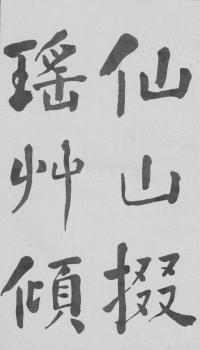 仙山掇
瑤艸傾